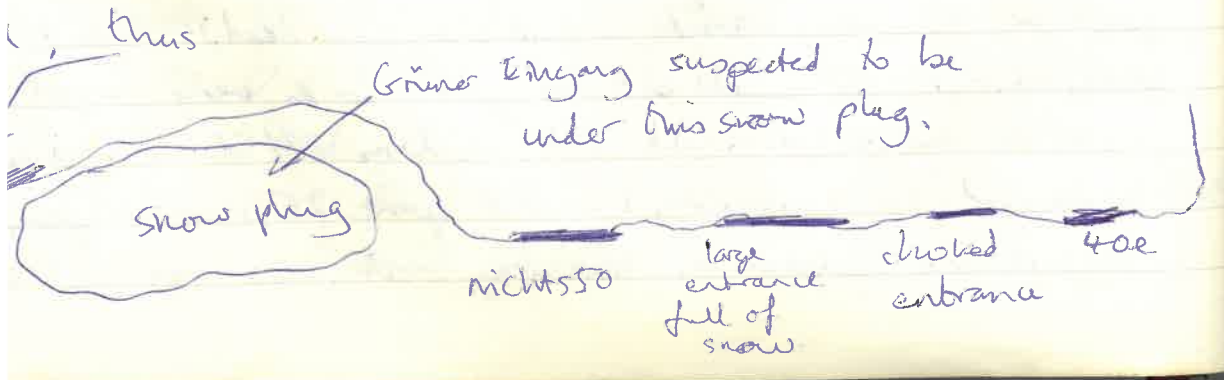 thus
Grüner Eingang suspected to be
under this snow plug.
snow plug
nichts50
large
entrance
full of
snow
choked
entrance
40e